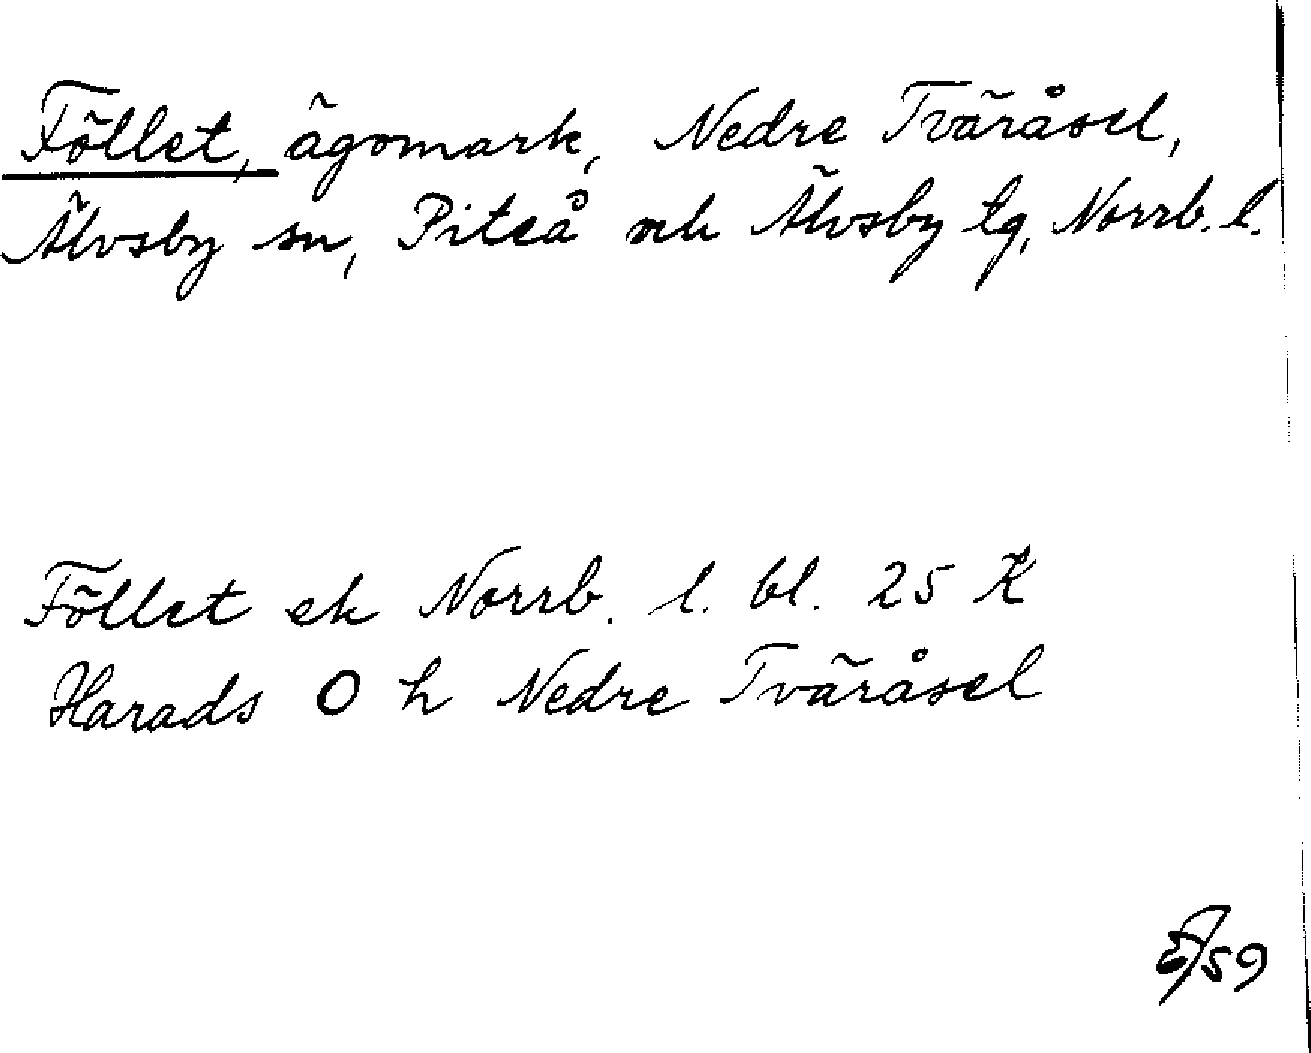 Föllet, ägomark, Nedre Tväråsel,
Älvsby sn, Piteå och Älvsby tg, Norrb. l.
Föllet ek Norrb. l. bl. 25 K
Harads O h Nedre Tväråsel
/59